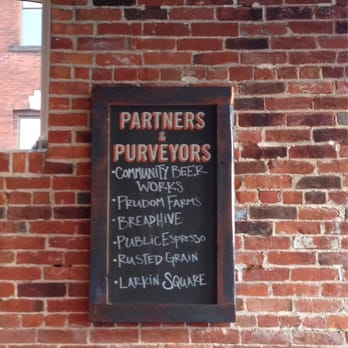 PARTNERS
&
PURVEYORS
•COMMUNITY BEER
WORKS
•PRUDOM FARMS
•BREADHIVE
•PUBLIC ESPRESSO
•RUSTED GRAIN
•LARKIN SQUARE